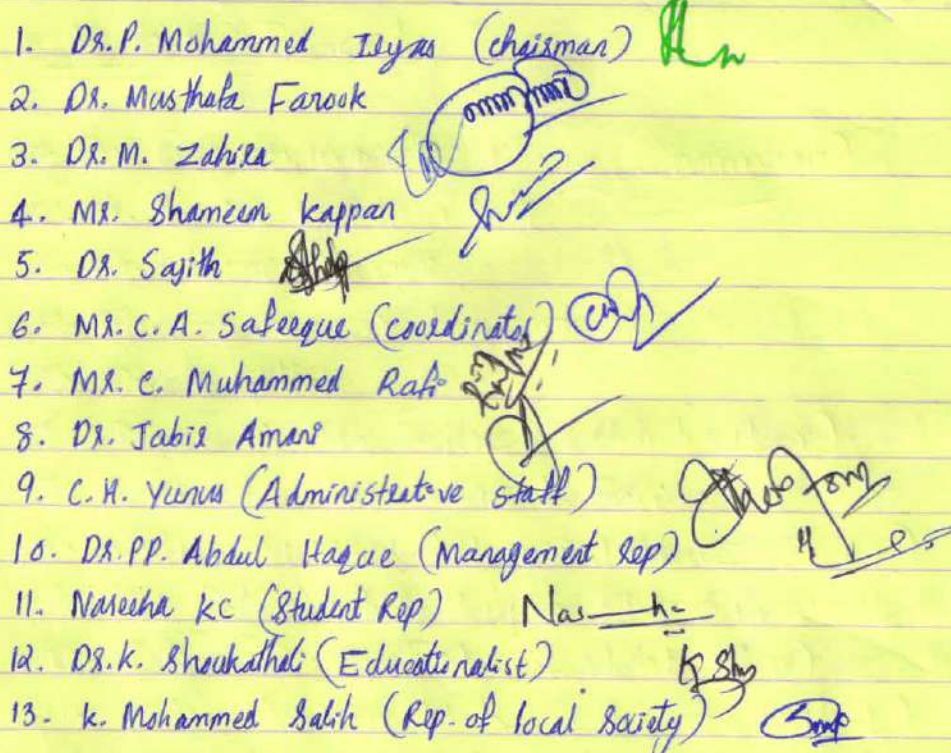 1. Dr. P. Mohammed Ilyas (chairman)
2. Dr. Musthafa Farook
3. Dr. M. Zahira
4. Mr. Shameem kappan
5. Dr. Sajith
6. Mr. C. A. Safeeque (coordinator)
7. Mr. C. Muhammed Rafi
8. Dr. Jabir Amani
9. C. H. Yunus (Administrative staff)
10. Dr. PP. Abdul Haque (Management rep)
11. Naseeha KC (Student Rep)
12. Dr. K. Shoukathali (Educationalist)
13. K. Mohammed Salih (Rep. of local Society)